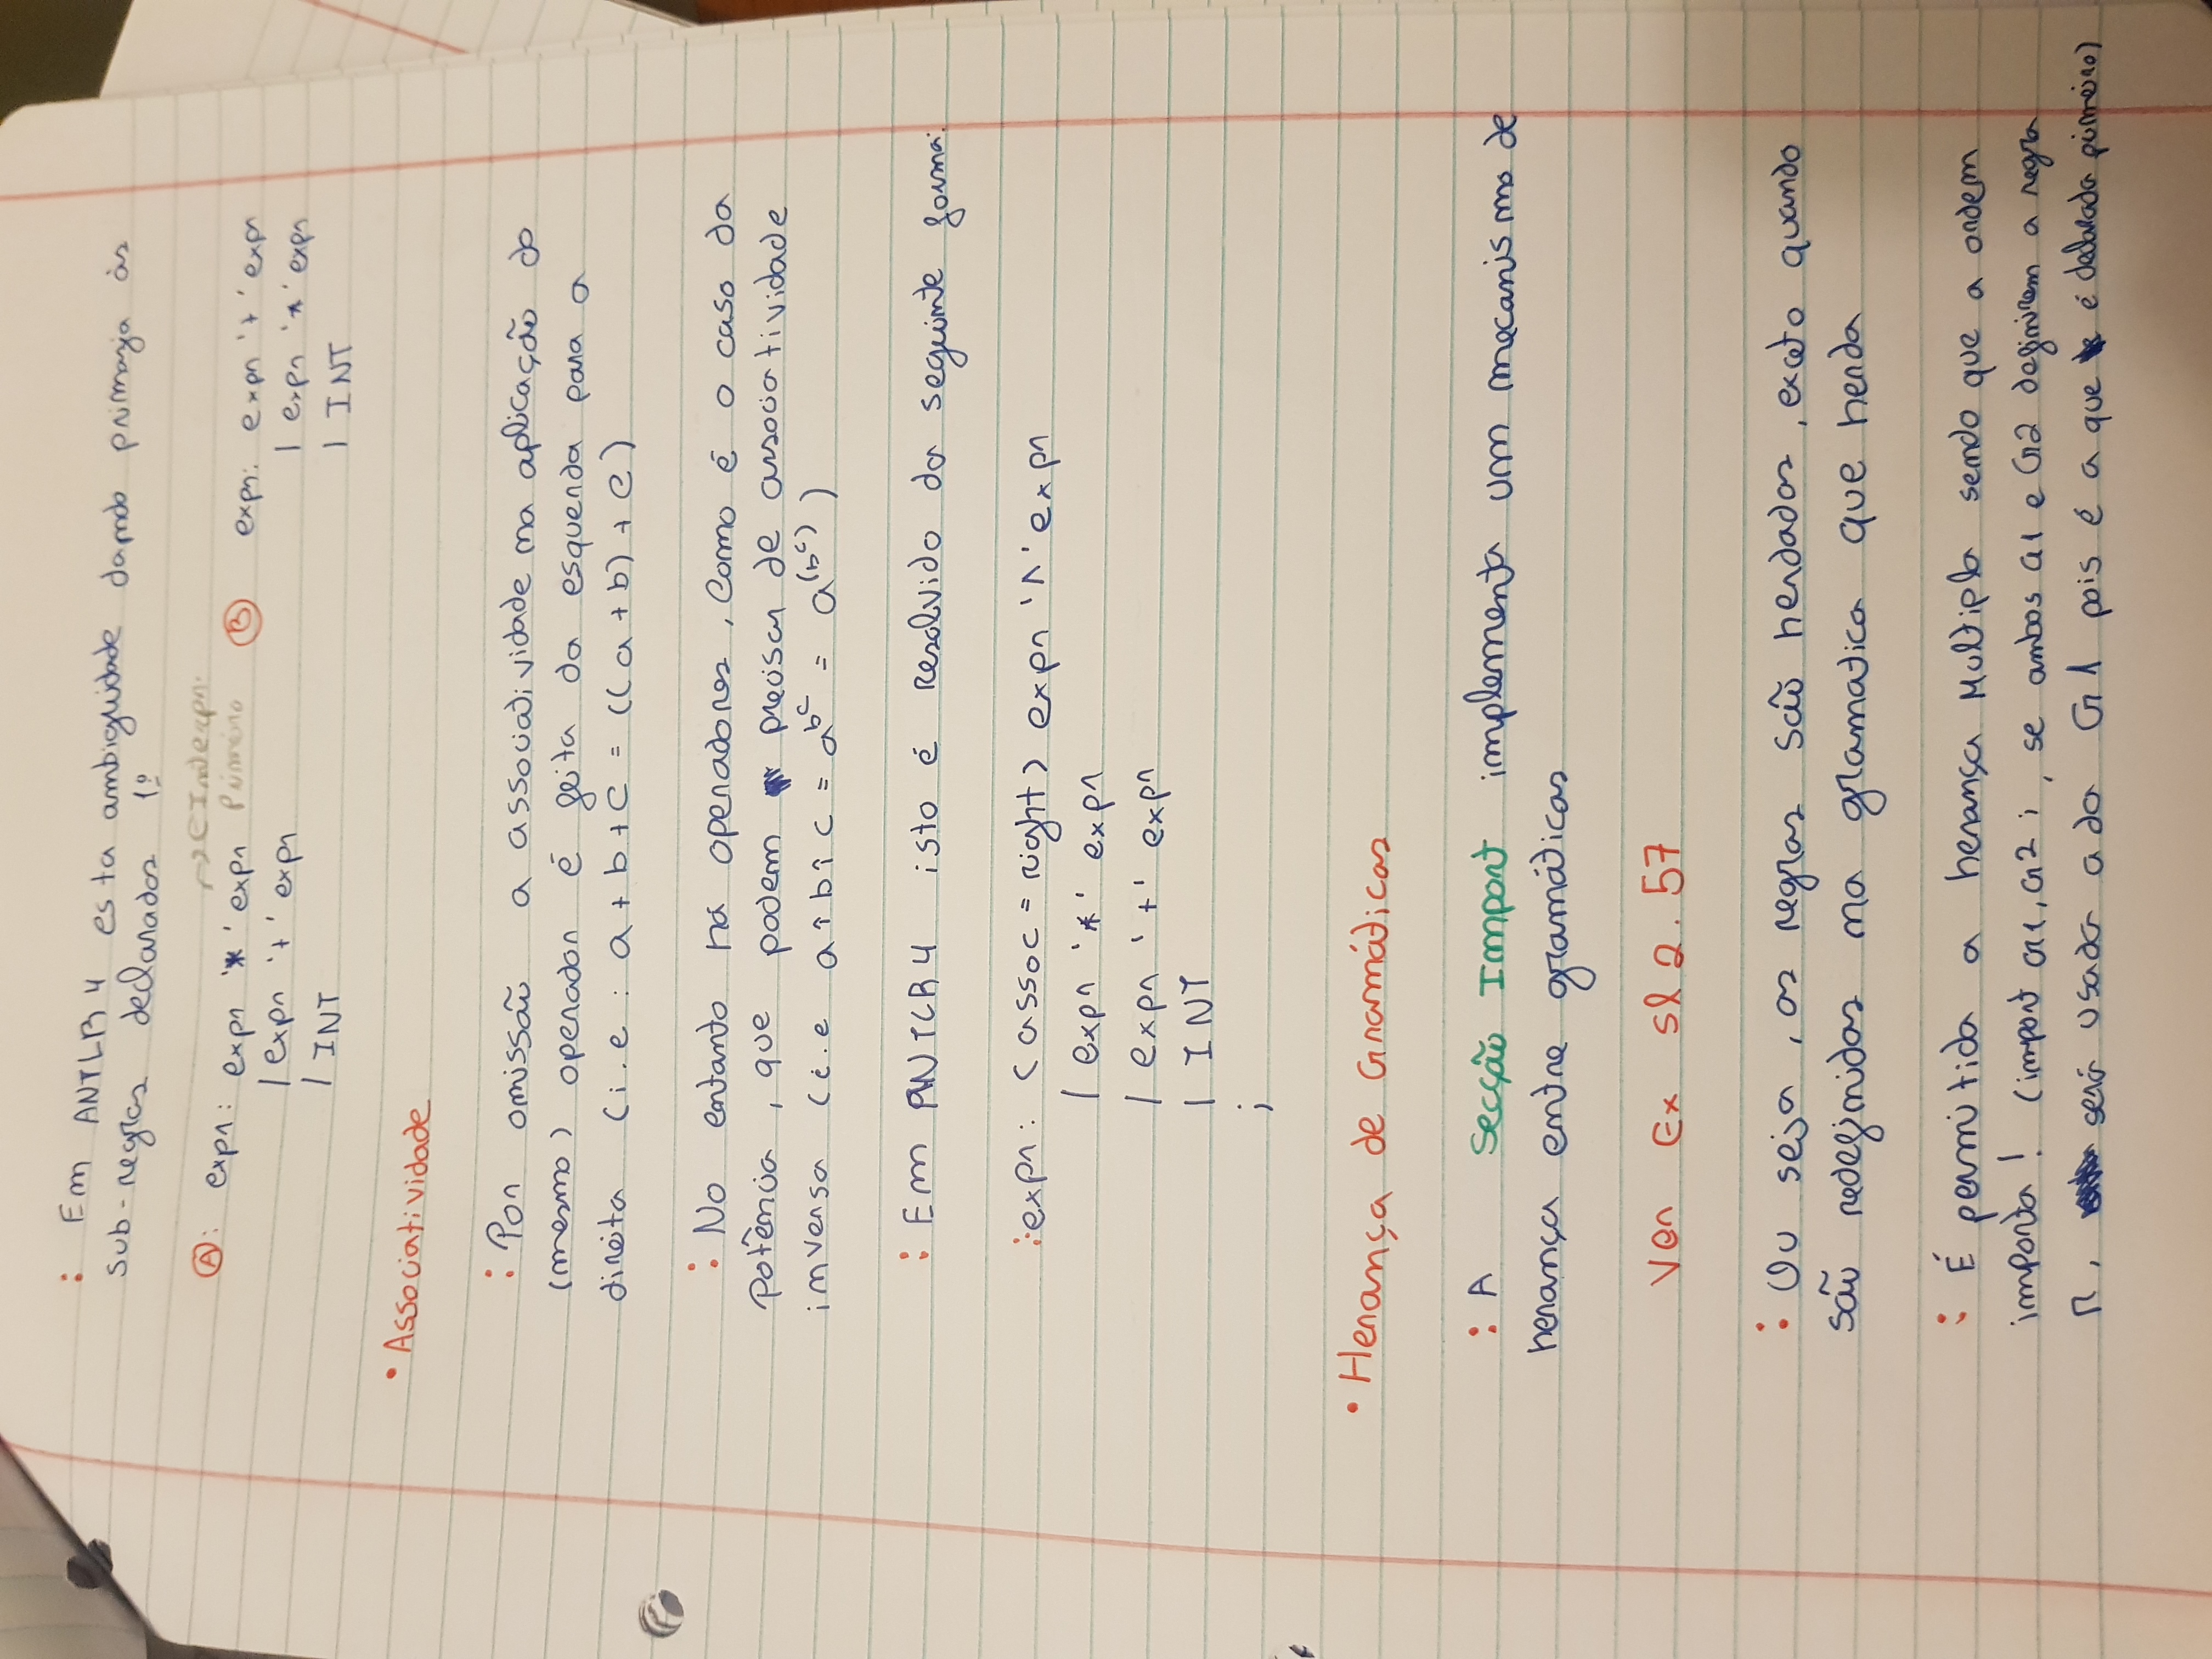 : Em ANTLR4 esta ambiguidade dando primazia às
sub-regras declaradas 1º
Ⓐ: expr: expr '*' expr
| expr '+' expr
| INT
→ Interpr.
Primeiro
Ⓑ expr: expr '+' expr
| expr '*' expr
| INT
• Associatividade
: Por omissão a associatividade na aplicação do
(mesmo) operador é feita da esquerda para a
direita (i.e : a + b + c = ((a + b) + c)
: No entanto há operadores, como é o caso da
Potência, que podem precisar de associatividade
inversa (i.e a↑b↑c = a^b^c = a^(b^c))
: Em ANTLR4 isto é resolvido da seguinte forma:
: expr: <assoc = right> expr '^' expr
| expr '*' expr
| expr '+' expr
| INT
;
• Herança de Gramáticas
: A Secção Import implementa um mecanismo de
herança entre gramáticas
Ver Ex sl 2. 57
: Ou seja, as regras são herdadas, exceto quando
são redefinidas na gramatica que herda
: É permitida a herança Multipla sendo que a ordem
importa! (import G1, G2; , se ambos G1 e G2 definirem a regra
R, será usada a da G1 pois é a que é declarada primeiro)